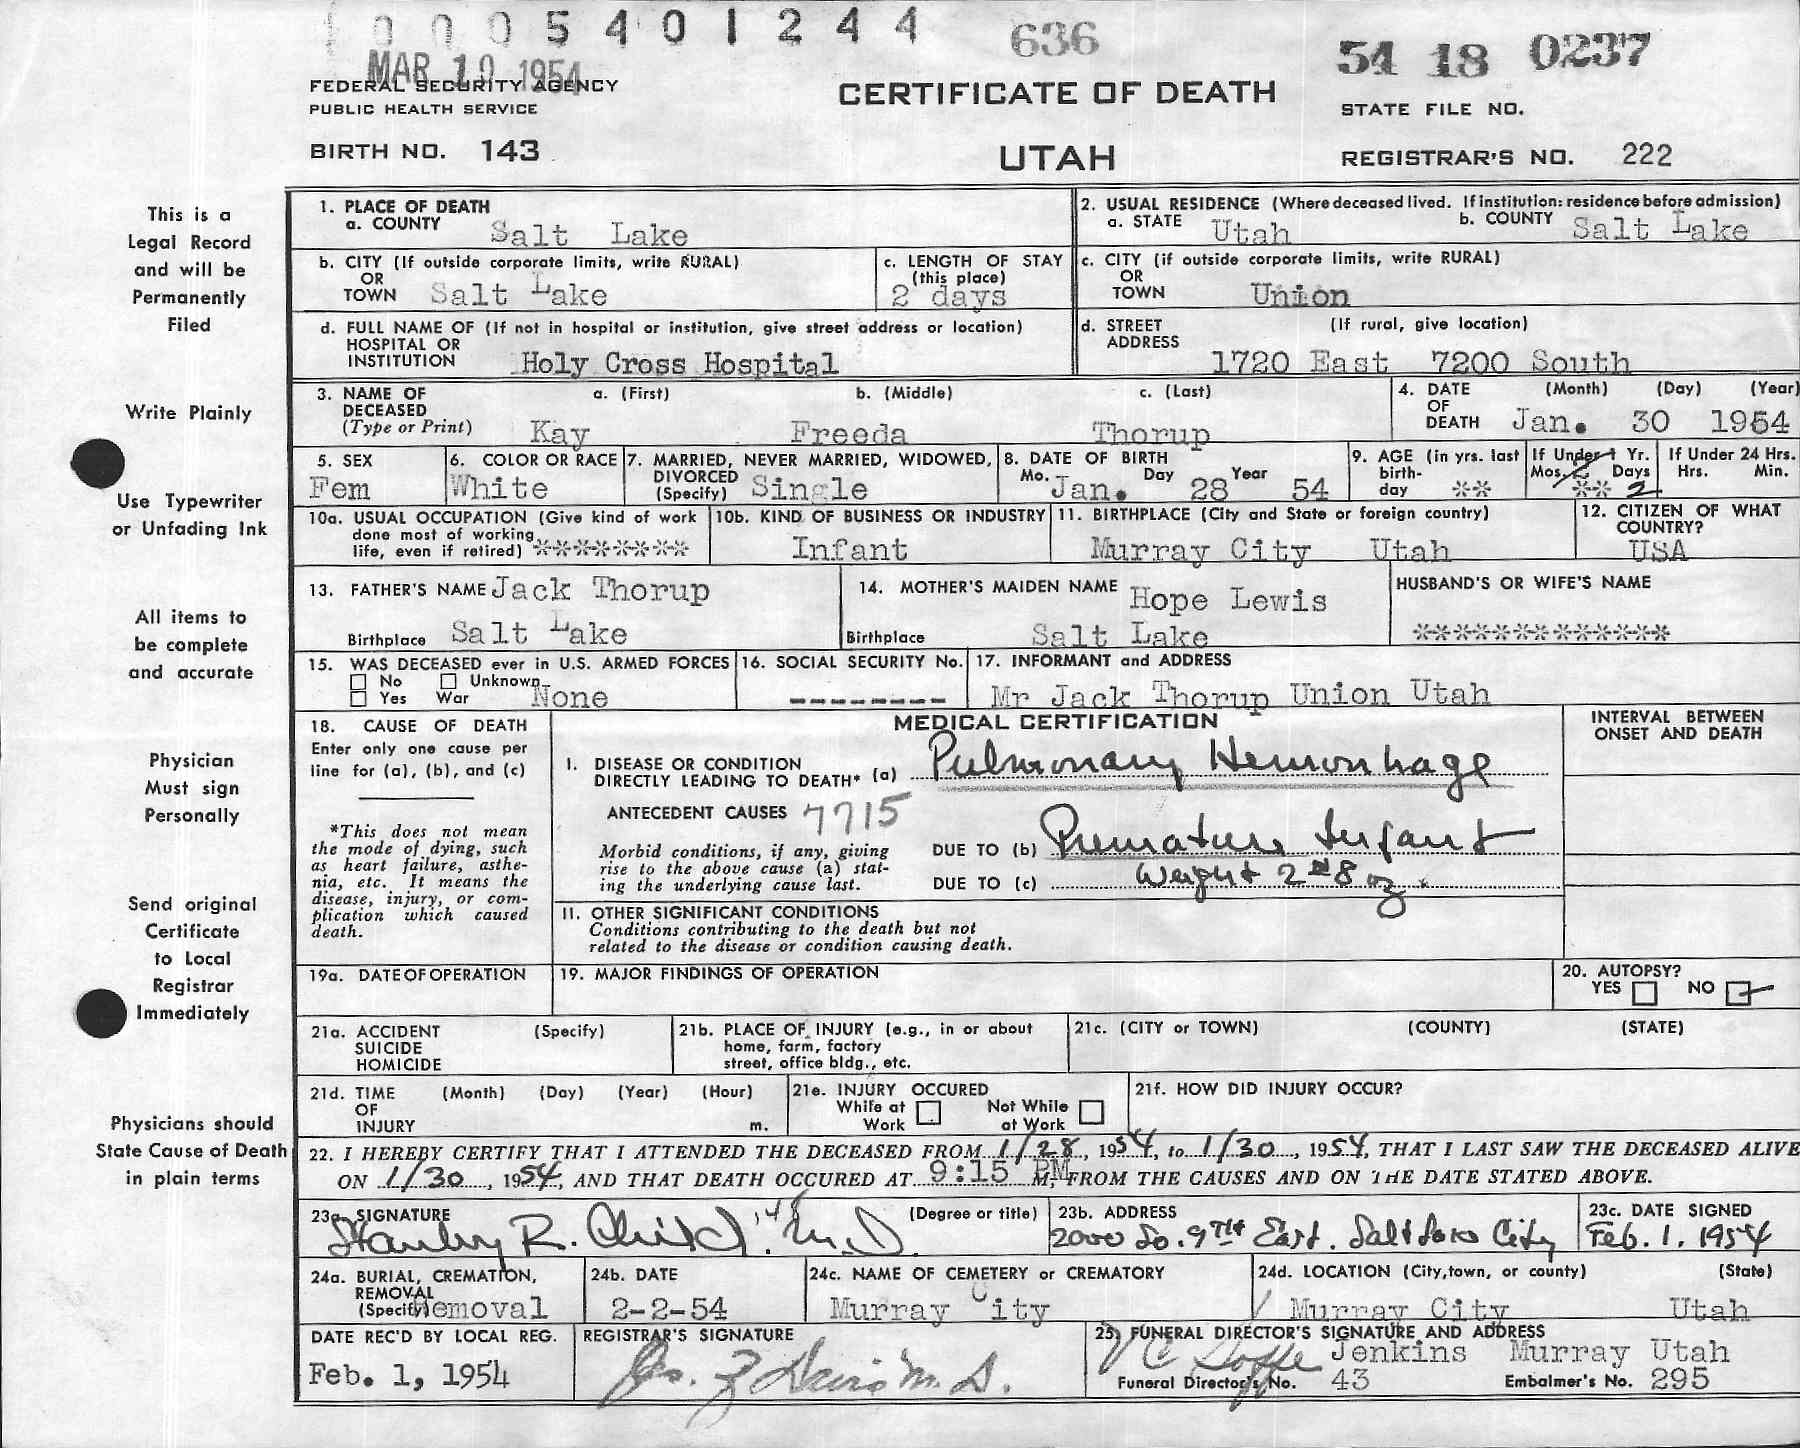 0005401244
636
54 18 0237
MAR 10 1954
FEDERAL SECURITY AGENCY
PUBLIC HEALTH SERVICE
CERTIFICATE OF DEATH
STATE FILE NO.
BIRTH NO. 143
UTAH
REGISTRAR'S NO. 222
This is a
Legal Record
and will be
Permanently
Filed
Write Plainly
Use Typewriter
or Unfading Ink
All items to
be complete
and accurate
Physician
Must sign
Personally
Send original
Certificate
to Local
Registrar
Immediately
Physicians should
State Cause of Death
in plain terms
1. PLACE OF DEATH
a. COUNTY Salt Lake
2. USUAL RESIDENCE (Where deceased lived. If institution: residence before admission)
a. STATE Utah b. COUNTY Salt Lake
b. CITY (If outside corporate limits, write RURAL)
OR
TOWN Salt Lake
c. LENGTH OF STAY
(this place)
2 days
c. CITY (if outside corporate limits, write RURAL)
OR
TOWN Union
d. FULL NAME OF (If not in hospital or institution, give street address or location)
HOSPITAL OR
INSTITUTION Holy Cross Hospital
d. STREET (If rural, give location)
ADDRESS
1720 East 7200 South
3. NAME OF a. (First) b. (Middle) c. (Last)
DECEASED
(Type or Print) Kay Freeda Thorup
4. DATE (Month) (Day) (Year)
OF
DEATH Jan. 30 1954
5. SEX
Fem
6. COLOR OR RACE
White
7. MARRIED, NEVER MARRIED, WIDOWED,
DIVORCED
(Specify) Single
8. DATE OF BIRTH
Mo. Jan. Day 28 Year 54
9. AGE (in yrs. last
birth-
day **
If Under 1 Yr.
Mos. Days
** 2
If Under 24 Hrs.
Hrs. Min.
10a. USUAL OCCUPATION (Give kind of work
done most of working
life, even if retired) ********
10b. KIND OF BUSINESS OR INDUSTRY
Infant
11. BIRTHPLACE (City and State or foreign country)
Murray City Utah
12. CITIZEN OF WHAT
COUNTRY?
USA
13. FATHER'S NAME Jack Thorup
Birthplace Salt Lake
14. MOTHER'S MAIDEN NAME Hope Lewis
Birthplace Salt Lake
HUSBAND'S OR WIFE'S NAME
*************
15. WAS DECEASED ever in U.S. ARMED FORCES
No Unknown
Yes War None
16. SOCIAL SECURITY No.
--------
17. INFORMANT and ADDRESS
Mr Jack Thorup Union Utah
18. CAUSE OF DEATH
Enter only one cause per
line for (a), (b), and (c)
*This does not mean
the mode of dying, such
as heart failure, asthe-
nia, etc. It means the
disease, injury, or com-
plication which caused
death.
MEDICAL CERTIFICATION
INTERVAL BETWEEN
ONSET AND DEATH
I. DISEASE OR CONDITION
DIRECTLY LEADING TO DEATH* (a) Pulmonary Hemorrhage
ANTECEDENT CAUSES 7715
Morbid conditions, if any, giving
rise to the above cause (a) stat-
ing the underlying cause last.
DUE TO (b) Premature Infant
DUE TO (c) Weight 2# 8 oz
II. OTHER SIGNIFICANT CONDITIONS
Conditions contributing to the death but not
related to the disease or condition causing death.
19a. DATE OF OPERATION
19. MAJOR FINDINGS OF OPERATION
20. AUTOPSY?
YES NO
21a. ACCIDENT (Specify)
SUICIDE
HOMICIDE
21b. PLACE OF INJURY (e.g., in or about
home, farm, factory
street, office bldg., etc.
21c. (CITY or TOWN) (COUNTY) (STATE)
21d. TIME (Month) (Day) (Year) (Hour)
OF
INJURY m.
21e. INJURY OCCURED
While at Not While
Work at Work
21f. HOW DID INJURY OCCUR?
22. I HEREBY CERTIFY THAT I ATTENDED THE DECEASED FROM 1/28, 1954, to 1/30, 1954, THAT I LAST SAW THE DECEASED ALIVE
ON 1/30, 1954, AND THAT DEATH OCCURED AT 9:15 PM M, FROM THE CAUSES AND ON THE DATE STATED ABOVE.
23a. SIGNATURE (Degree or title)
Stanley R. Child M.D.
23b. ADDRESS
2000 So. 9TH East. Salt Lake City
23c. DATE SIGNED
Feb. 1. 1954
24a. BURIAL, CREMATION,
REMOVAL
(Specify) Removal
24b. DATE
2-2-54
24c. NAME OF CEMETERY or CREMATORY
Murray City
24d. LOCATION (City, town, or county) (State)
Murray City Utah
DATE REC'D BY LOCAL REG.
Feb. 1, 1954
REGISTRAR'S SIGNATURE
25. FUNERAL DIRECTOR'S SIGNATURE AND ADDRESS
Jenkins Murray Utah
Funeral Director's No. 43 Embalmer's No. 295